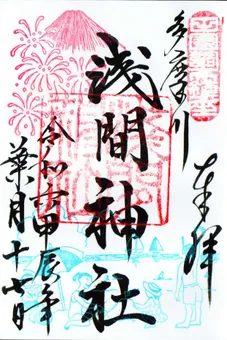 多摩川
奉拝
浅間神社
令和六甲辰年
葉月十七日